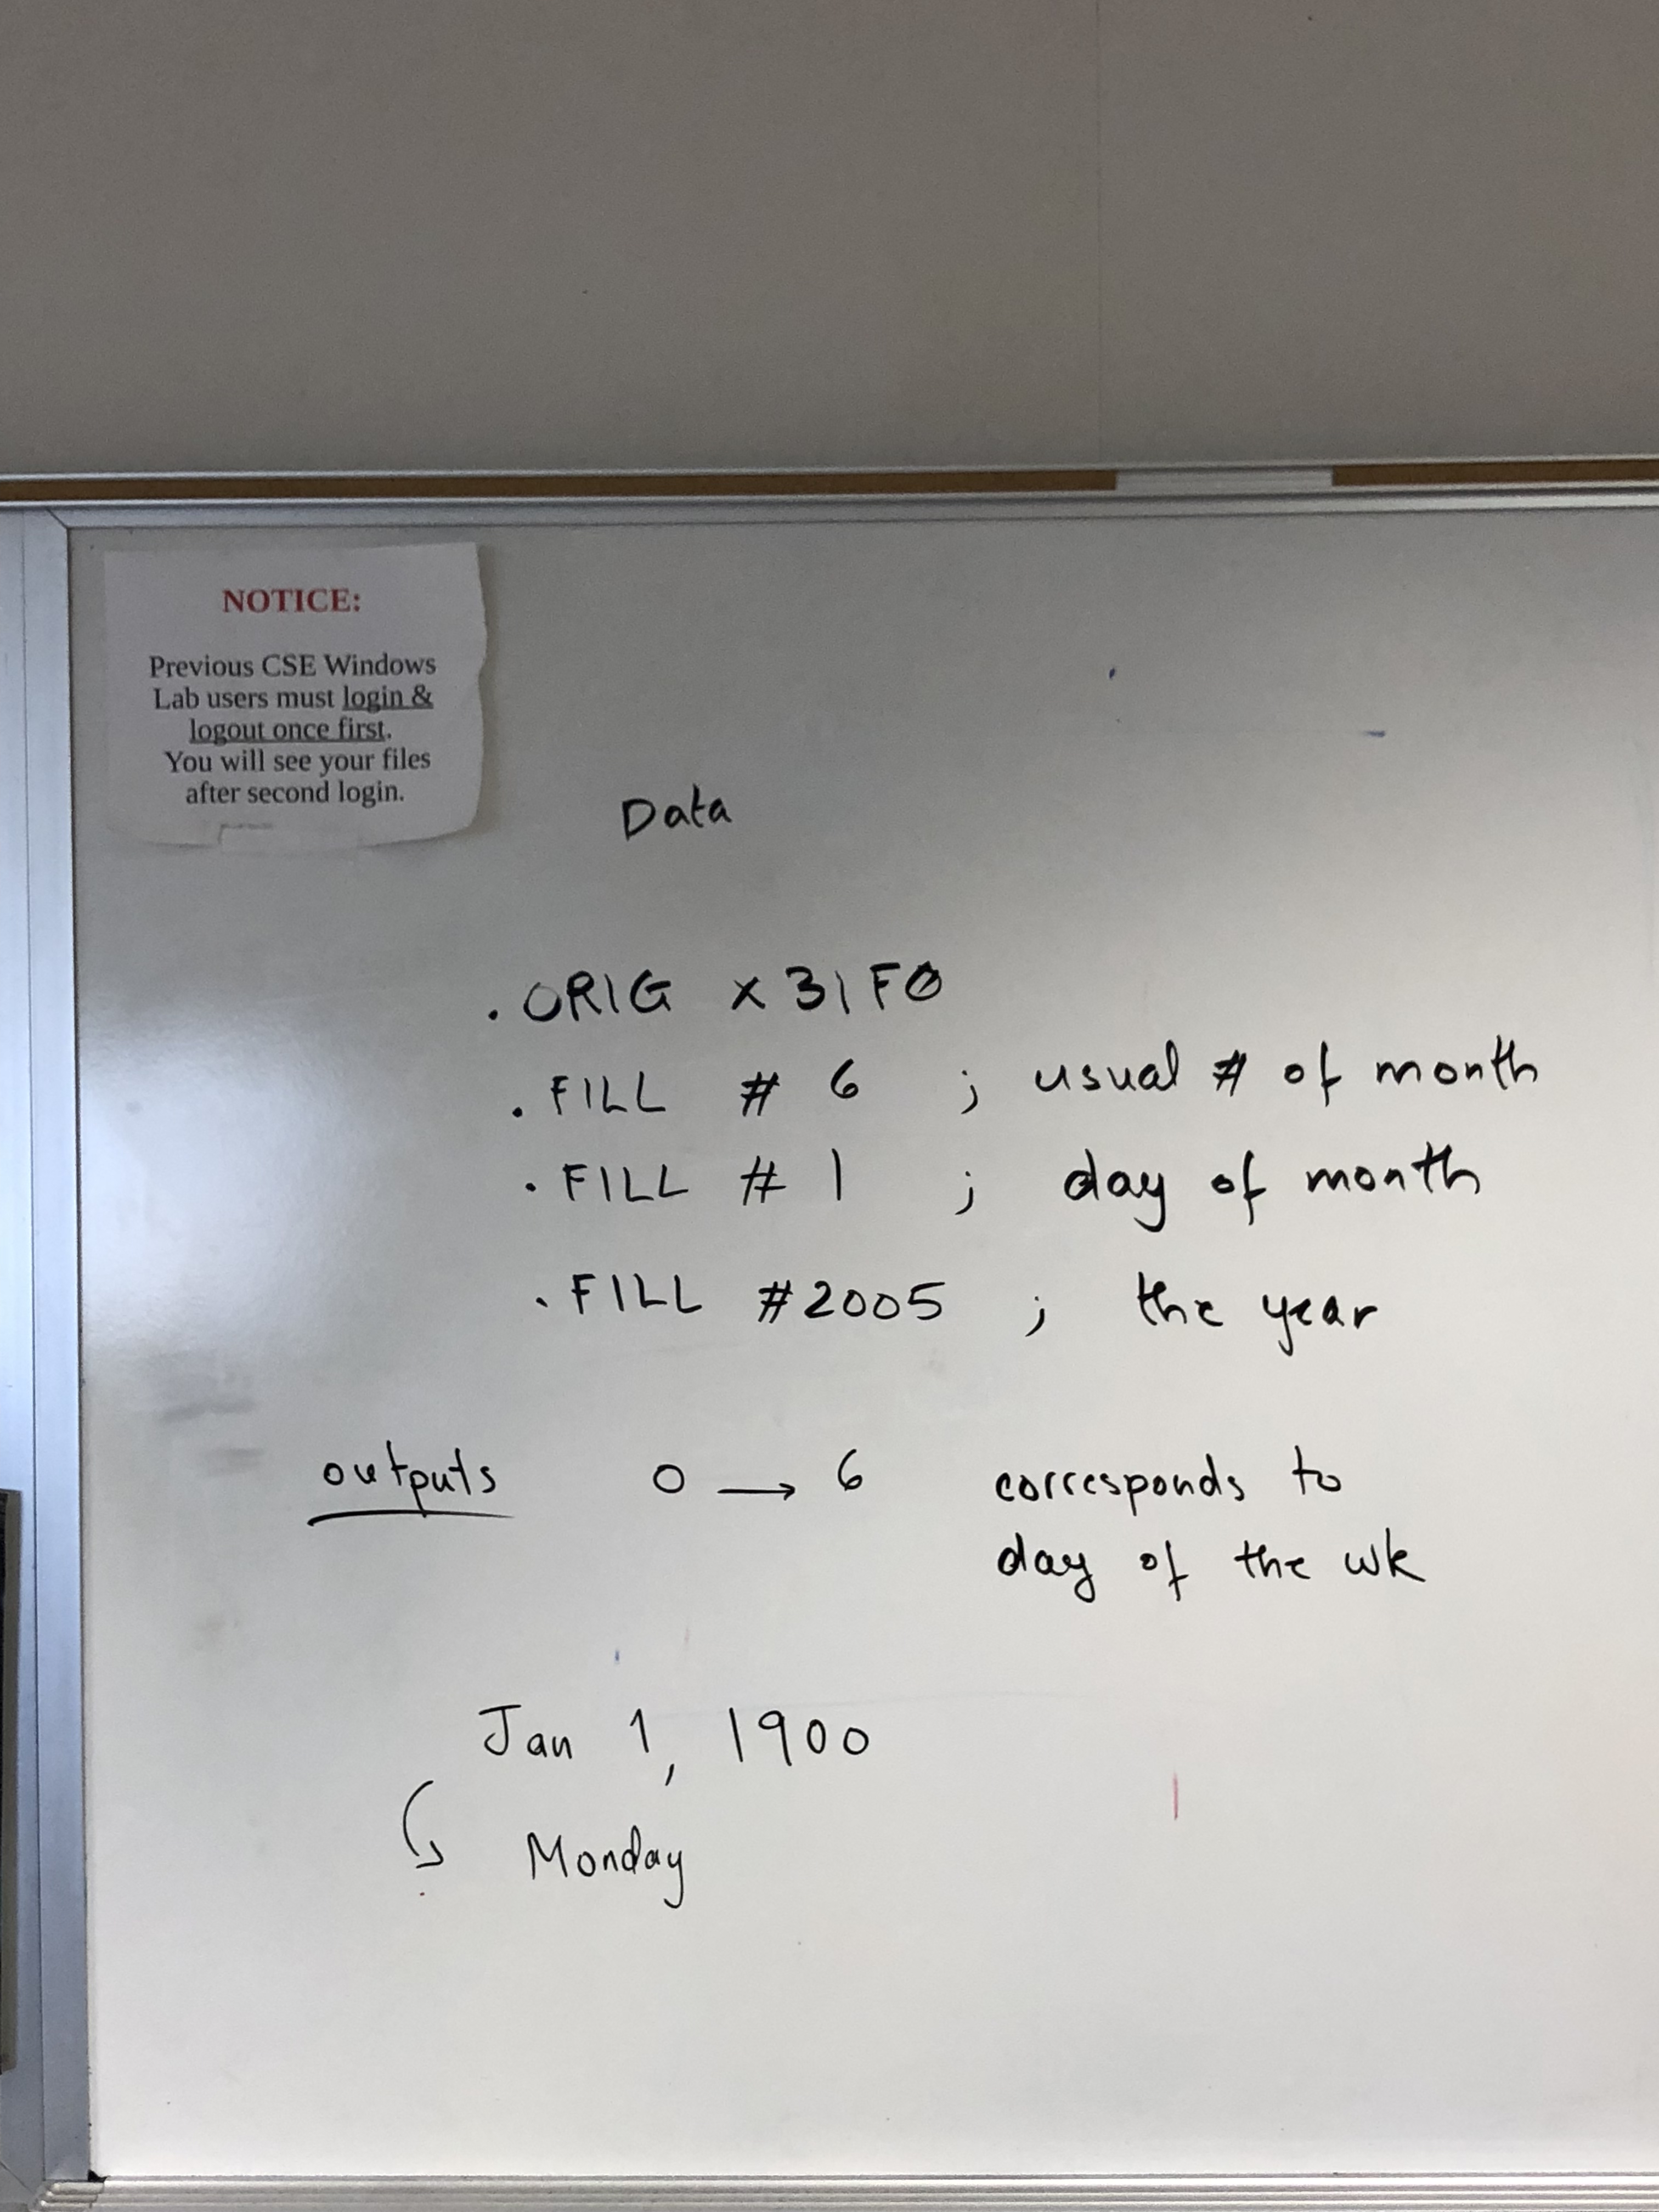 NOTICE:
Previous CSE Windows
Lab users must login &
logout once first.
You will see your files
after second login.
Data
.ORIG x31F0
.FILL # 6 ; usual # of month
.FILL # 1 ; day of month
.FILL #2005 ; the year
outputs 0 → 6 corresponds to
day of the wk
Jan 1, 1900
Monday